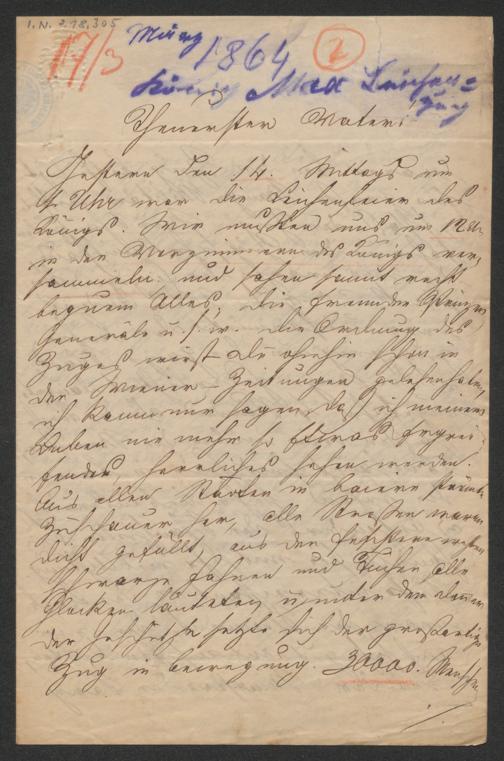 I.N. 218.305
17/3
März
1864
2
König Max Leichen=
zug
Theuerster Vater!
Gestern den 14. Mittags um
1 Uhr war die Leichenfeier des
Königs. Wir mußten uns um 12 Uhr
in den Vorzimmern des Königs ver=
sammeln und sahen somit recht
bequem Alles, die fremden Prinzen
Generäle u.s.w. die Ordnung des
Zuges wirst du ohnehin schon in
den Wiener-Zeitungen gelesen haben,
ich kann nur sagen, daß ich meinem
Leben nie mehr so Etwas Ergrei=
fendes herrliches sehen werden.
Aus allen Städten in Baiern
Zuschauer her, alle Strassen waren
dicht gefüllt, aus den Fenstern
schwarze Fahnen und Tücher alle
Glocken läuteten u. unter dem Donner
der Geschütze setzte sich der großartige
Zug in bewegung. 30000. Menschen